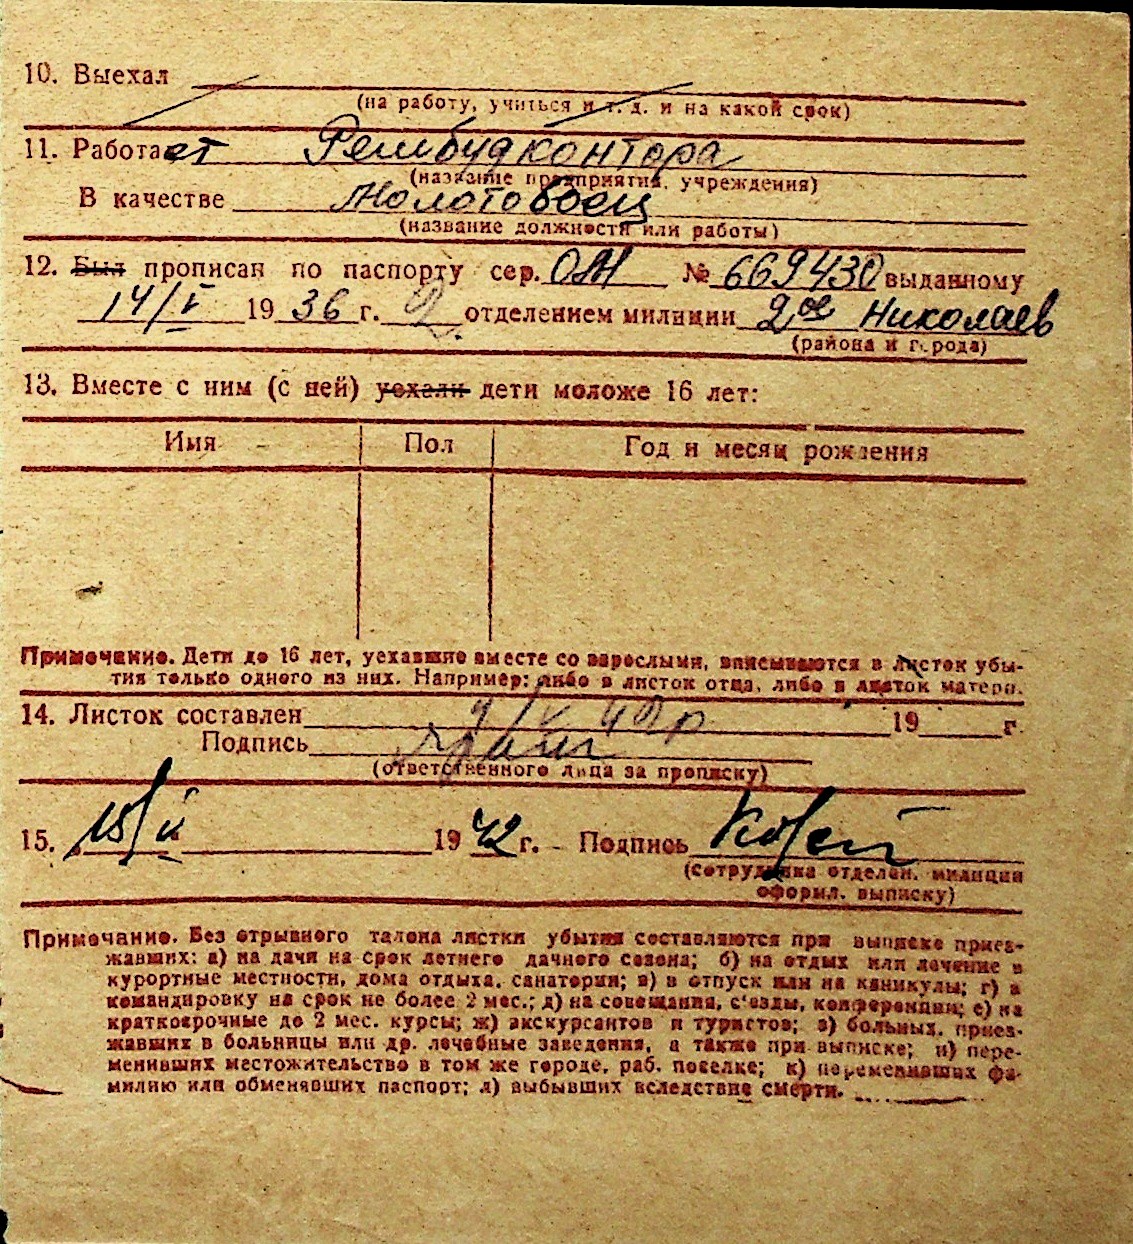 10. Выехал
(на работу, учиться и т. д. и на какой срок)
11. Работает Рембудконтора
(название предприятия, учреждения)
В качестве Молотобоец
(название должности или работы)
12. Был прописан по паспорту сер. ОЖ № 669430 выданному
14/V 1936 г. 2 отделением милиции 2ое Николаев
(района и города)
13. Вместе с ним (с ней) уехали дети моложе 16 лет:
Имя Пол Год и месяц рождения
Примечание. Дети до 16 лет, уехавшие вместе со взрослыми, вписываются в листок убы-
тия только одного из них. Например: либо в листок отца, либо в листок матери.
14. Листок составлен 19 г.
Подпись
(ответственного лица за прописку)
15. 1942 г. - Подпись
(сотрудника отделен. милиции
оформл. выписку)
Примечание. Без отрывного талона листки убытия составляются при выписке приез-
жавших: а) на дачи на срок летнего дачного сезона; б) на отдых или лечение в
курортные местности, дома отдыха, санатории; в) в отпуск или на каникулы; г) в
командировку на срок не более 2 мес.; д) на совещания, с'езды, конференции; е) на
краткосрочные до 2 мес. курсы; ж) экскурсантов и туристов; з) больных, приез-
жавших в больницы или др. лечебные заведения, а также при выписке; и) пере-
менивших местожительство в том же городе, раб. поселке; к) переменивших фа-
милию или обменявших паспорт; л) выбывших вследствие смерти.